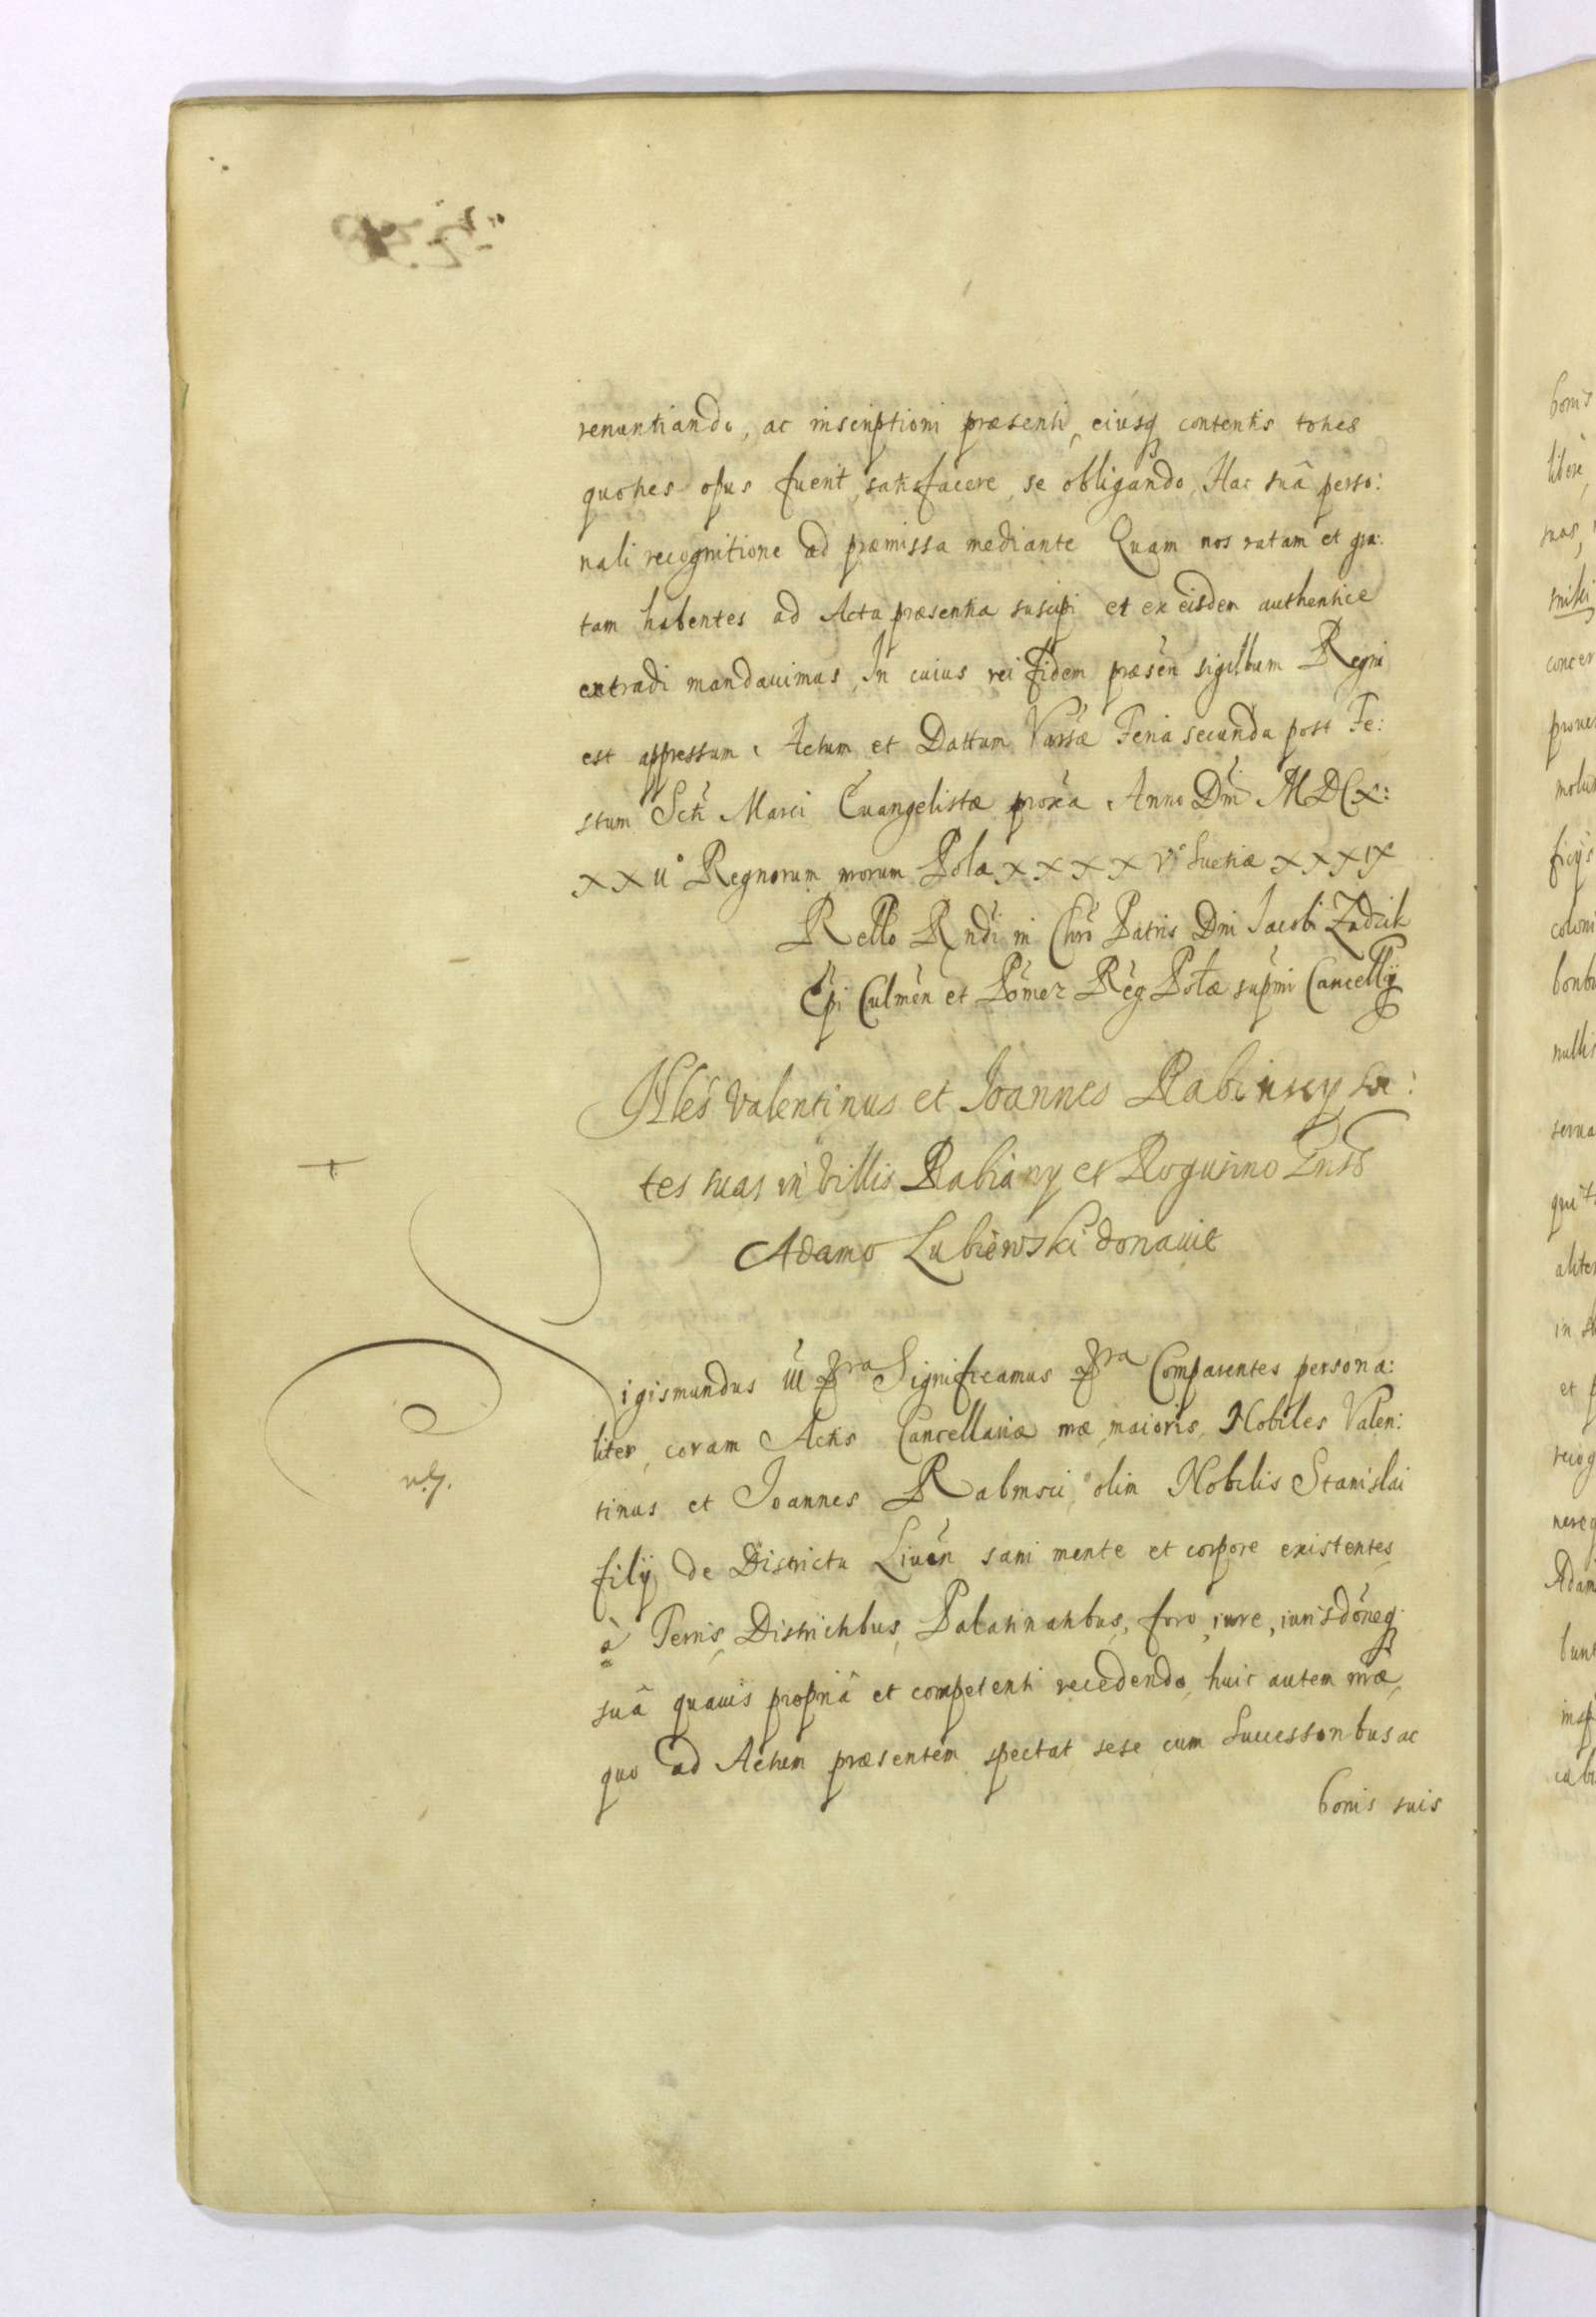 renuntiando, ac inscriptioni præsenti, eiusq contentis toties
quoties opus fuerit, satisfacere, se obligando, Hac suâ perso:
nali recognitione ad præmissa mediante Quam nos ratam et gra:
tam habentes ad Acta præsentia suscipi et ex eisdem authentice
extradi mandauimus, In cuius rei fidem præsen sigillum Regni
est appressum. Actum et Dattum Varsæ Feria secunda post Fe:
stum Scti Marci Euangelistæ proxa Anno Dni MDCX:
XXII° Regnorum nrorum Polæ XXXXV° Suetiæ XXXIX
Rello Rndi in Chro Patris Dni Jacobi Zadzik
Epi Culmen et Pomez Reg Polæ supmi Cancellÿ
Nles Valentinus et Joannes Rabinscy sor:
tes suas in Villis Rabiany et Rogusino
Adamo Lubiewski donauit
igismundus III Significamus Comparentes persona:
liter, coram Actis Cancellariæ nræ maioris, Nobiles Valen:
tinus et Joannes Rabinscii olim Nobilis Stanislai
filÿ de Districtu Liuen sani mente et corpore existentes
à Terris, Districtibus, Palatinatibus, foro, iure, iurisdoneq
suâ quauis propriâ et competenti recedendo, huic autem nræ,
quo ad Actum præsentem spectat sese cum Successoribus ac
bonis suis